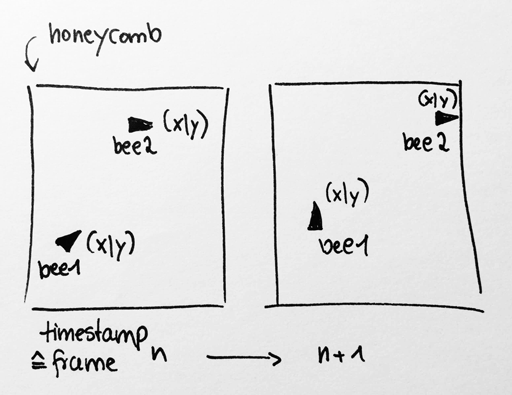 honeycomb
(x|y)
bee2
(x|y)
bee1
(x|y)
bee2
(x|y)
bee1
timestamp
≙ frame n → n+1